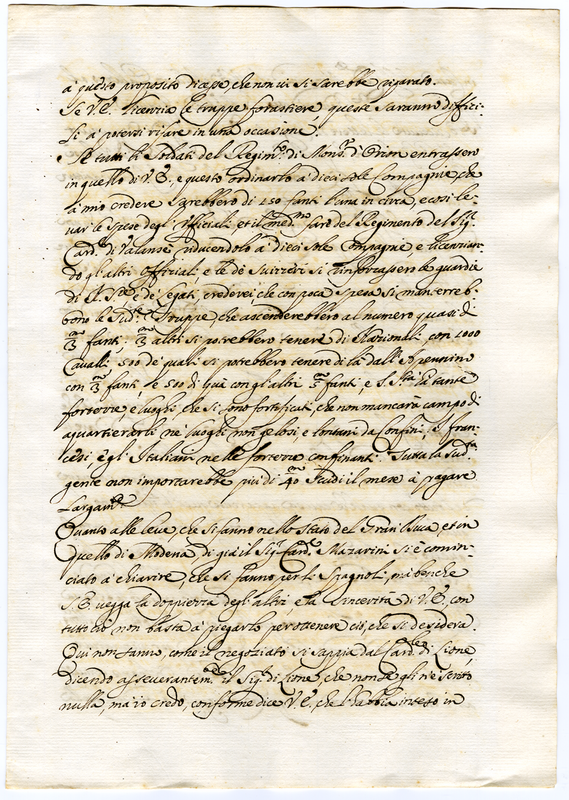 à questo proposito dicesse che non vi si sarebbe riparato.
Se V. E. licenzia le truppe forastiere, queste saranno diffici-
li à potersi rifare in una occasione.
Se tutti li Soldati del Regim.to di Mons.r d'Orion entrassero
in quello di V. E., e questo ordinarlo à dieci sole Compagnie, che
à mio credere sarebbero di 150 fanti l'una in circa, e così le-
var le spese degl'Vfficiali, et il med.mo fare del Regimento del Sig.r
Card. di Valansè riducendolo à dieci sole Compagnie, e licenzian-
do gl'altri Officiali, e se de Suizzeri si rinforzassero le guardie
di N. S.re e de' Legati, crederei che con poca spesa si manterreb-
bono le sud.e truppe, che ascenderebbero al numero quasi di
3 fanti, 3 altri si potrebbero tenere di Nazionali con 1000
Cavalli, 500 de quali si potrebbero tenere di là dall'Apennino
con 3 fanti, e 500 di quà con gl'altri 3 fanti, e S. S.tà hà tante
fortezze e luoghi che si sono fortificati, che non mancarà campo di
aquartierarli ne' luoghi non gelosi e lontani da Confini, li fran-
cesi, e gl'Italiani nelle fortezze confinanti. Tutta la sud.a
gente non importarebbe più di 40 scudi il mese à pagare
largam.te
Quanto alle leve, che si fanno nello Stato del Gran Duca, et in
quello di Modena, di già il Sig.r Card. Mazarini si è comin-
ciato à chiarire, che si fanno per li Spagnoli, mà benche
S. E. vegga la doppiezza degl'altri e la sincerità di V. E. con
tutto ciò non basta à piegarlo per ottenere ciò, che si desidera.
Qui non sanno, come il negoziato si sappia dal Card.le di Lione,
dicendo asseverantem.te il Sig.r di Lione, che non hà egli n'è scritto
nulla, mà io credo, conforme dice V. E., che l'habbia inteso in